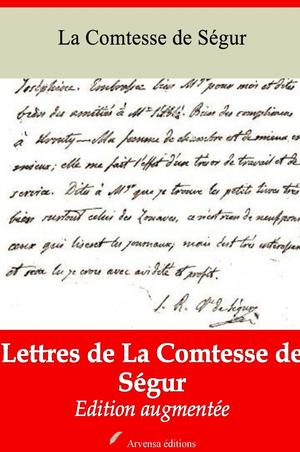 La Comtesse de Ségur
Joséphine. Embrassez bien Mgr pour moi et dites
bien des amitiés à Mr l'Abbé. Bien des compliments
à Ma femme de chambre est de mieux en
mieux; elle me fait l'effet d'un trésor de travail et de
service. Dites à Mgr que je trouve les petits livres très
bien surtout celui des Zouaves, ce n'est rien de neuf pour
ceux qui lisent les journaux; mais c'est très intéressant
et sera lu je crois avec avidité et profit.
Lettres de La Comtesse de
Ségur
Edition augmentée
Arvensa éditions